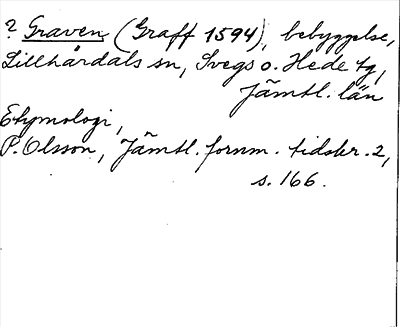 ? Graven (Graff 1594), bebyggelse,
Lillhärdals sn, Svegs o. Hede tg,
Jämtl. län
Etymologi,
P. Olsson, Jämtl. fornm. tidskr. 2,
s. 166.